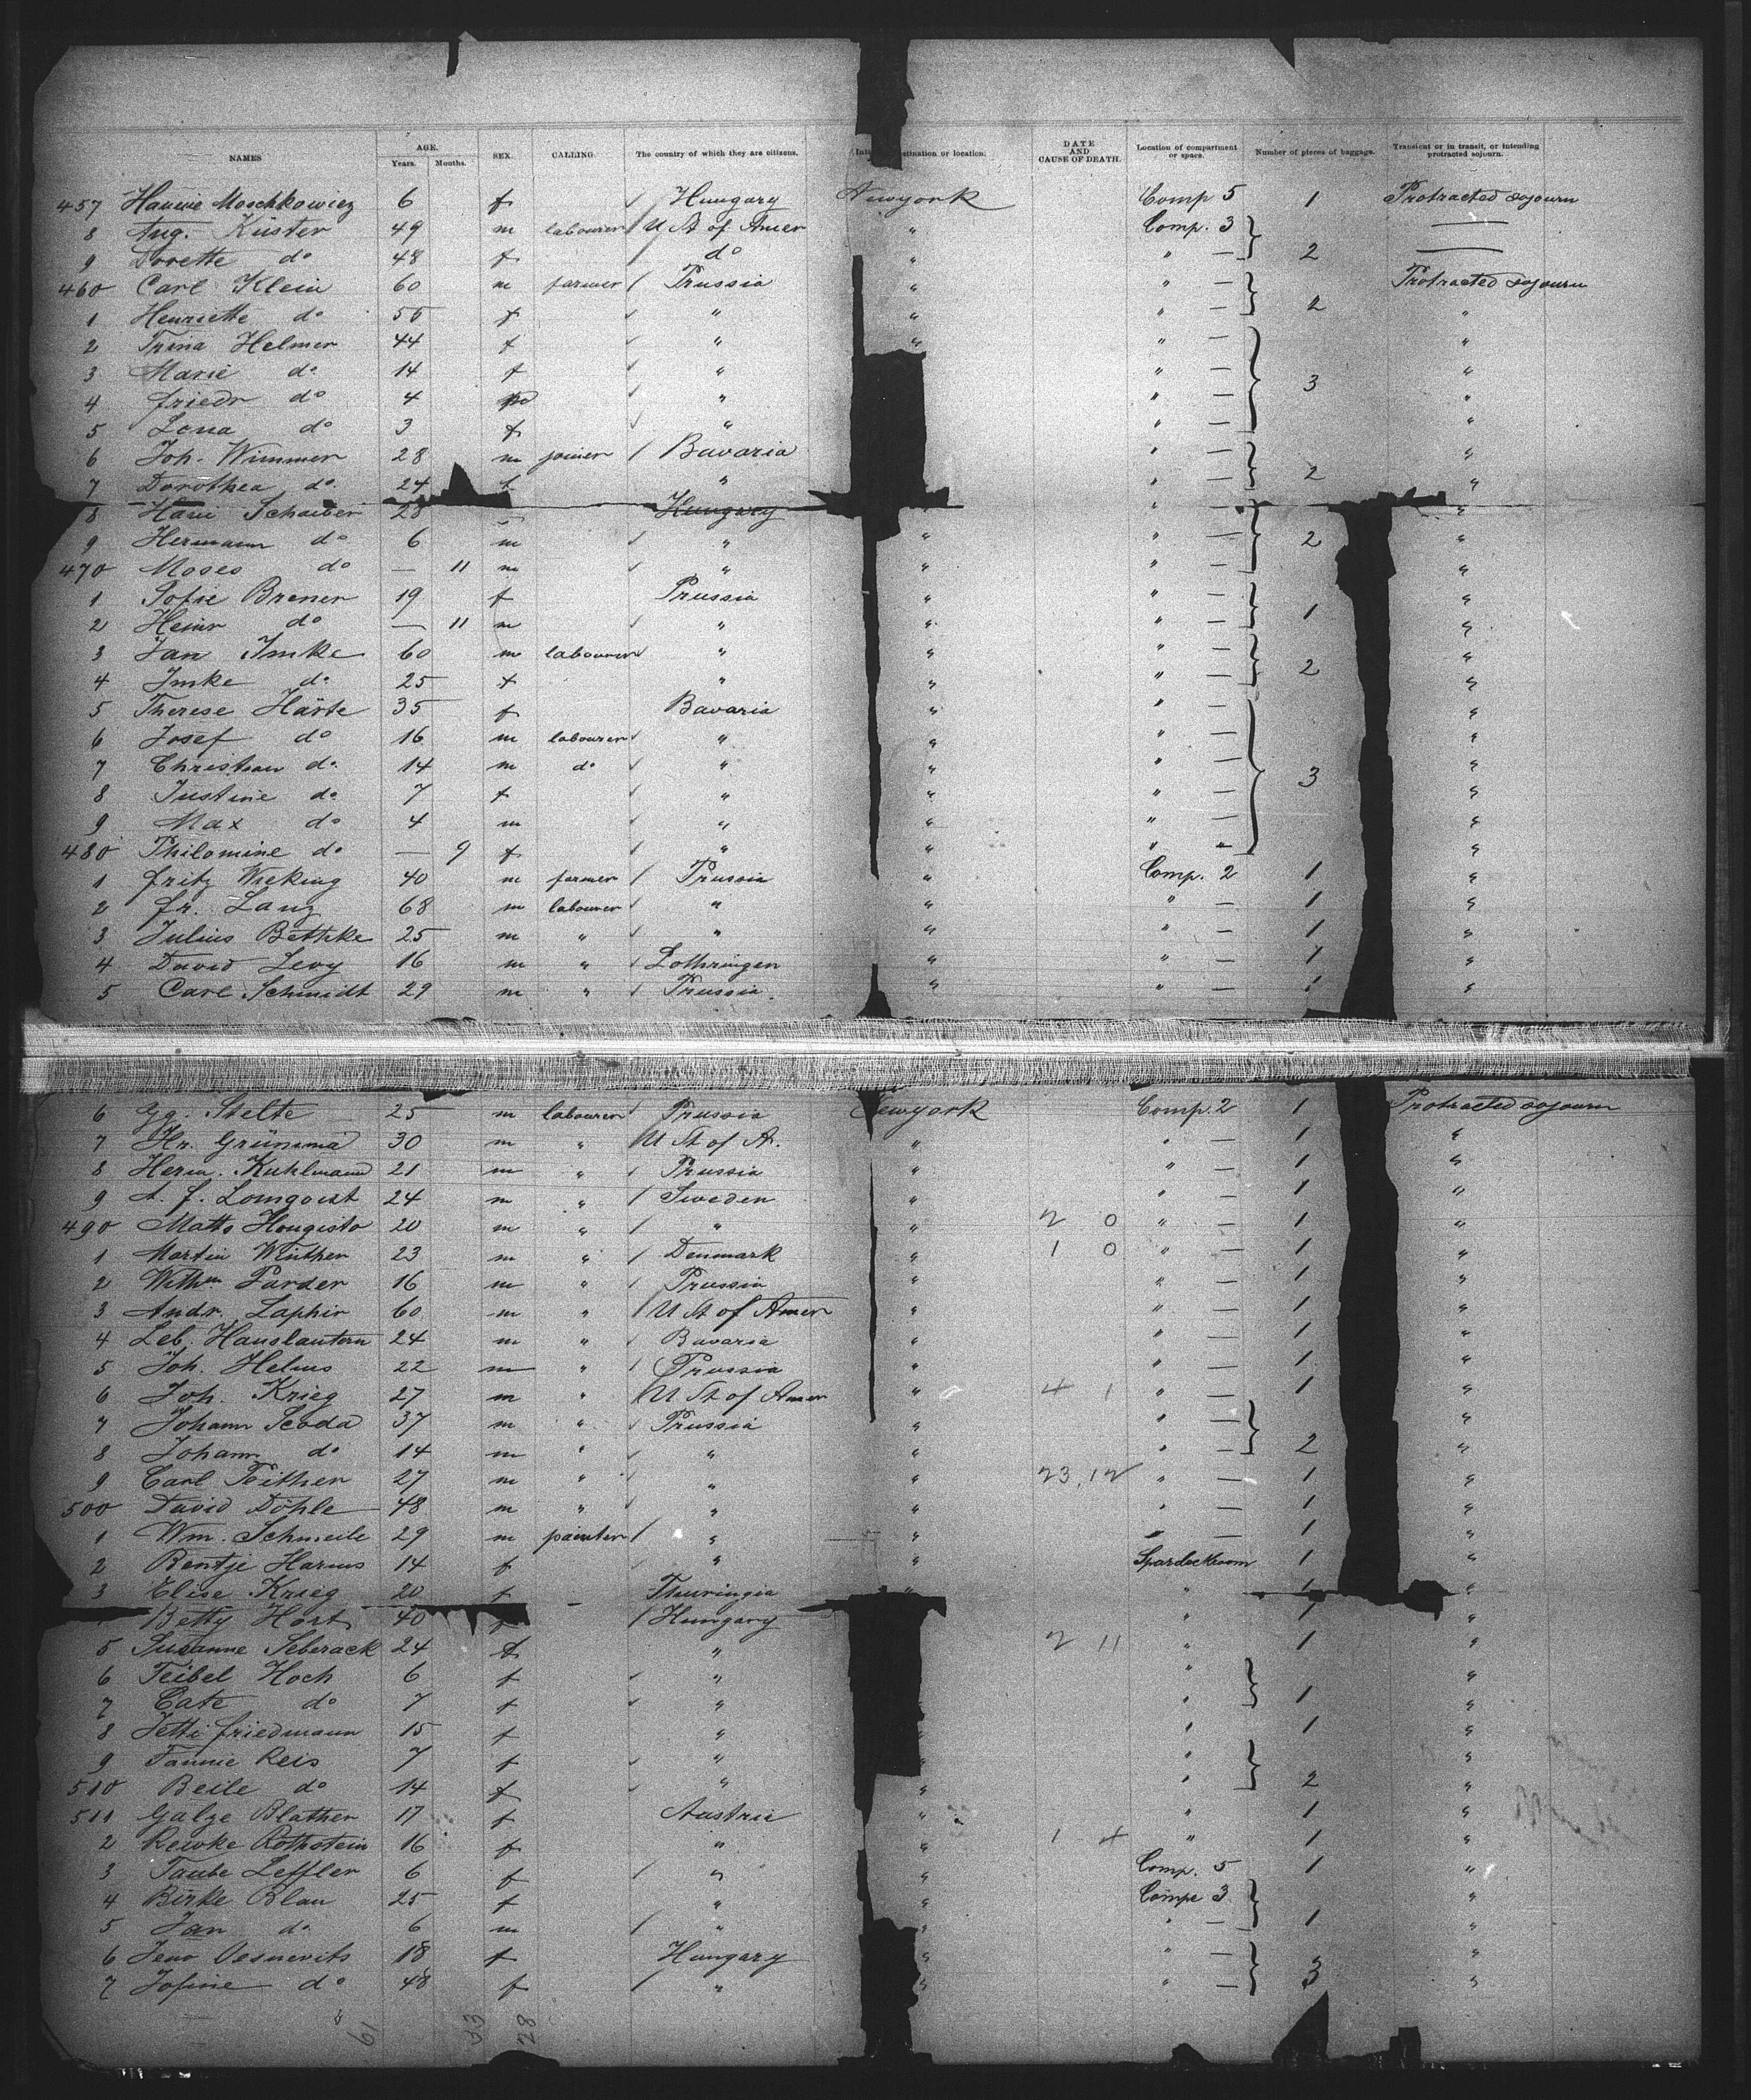 NAMES AGE. Years. Months. SEX. CALLING. The country of which they are citizens. destination or location. DATE AND CAUSE OF DEATH. Location of compartment or space. Number of pieces of baggage. Transient or in transit, or intending protracted sojourn.
457 Hannie Moschkowicz 6 f Hungary Newyork Comp 5 1 Protracted sojourn
8 Aug. Küster 49 m labourer U St of Amer " Comp. 3 —
9 Dorette do 48 f do " " — 2 —
460 Carl Klein 60 m farmer Prussia " " — Protracted sojourn
1 Henriette do 55 f " " " — 2 "
2 Trina Helmer 44 f " " " — "
3 Marie do 14 f " " — 3 "
4 Friedr do 4 " " — "
5 Lena do 3 f " " — "
6 Joh. Wimmer 28 m joiner Bavaria " — "
7 Dorothea do 24 f " " — 2 "
8 Hani Schaiber 28 Hungary " — "
9 Hermann do 6 m " " " — 2 "
470 Moses do — 11 m " " " — "
1 Sofie Brener 19 f Prussia " " — "
2 Heinr do — 11 m " " " — 1 "
3 Jan Imke 60 m labourer " " " — "
4 Imke do 25 f " " " — 2 "
5 Therese Härte 35 f Bavaria " " — "
6 Josef do 16 m labourer " " " — "
7 Christian do 14 m do " " " — 3 "
8 Justine do 7 f " " " — "
9 Max do 4 m " " " — "
480 Philomine do — 9 f " " " "
1 Fritz Wieking 40 m farmer Prussia " Comp. 2 1 "
2 Fr. Lanz 68 m labourer " " " — 1 "
3 Julius Bethke 25 m " " " " — 1 "
4 David Levy 16 m " Lothringen " " — 1 "
5 Carl Schmidt 29 m " Prussia " " — 1 "
6 Gg. Stelte 25 m labourer Prussia Newyork Comp. 2 1 Protracted sojourn
7 Hr. 30 m " U St of A. " " — 1 "
8 Herm. Kuhlmann 21 m " Prussia " " — 1 "
9 A. F. Lomqvist 24 m " Sweden " " — 1 "
490 Matts Hongisto 20 m " " " 2 0 " — 1 "
1 Martin Winther 23 m " Denmark " 1 0 " — 1 "
2 Wilhm Parder 16 m " Prussia " " — 1 "
3 Andr. Laphir 60 m " U St of Amer " " — 1 "
4 Leb. Hauslautern 24 m " Bavaria " " — 1 "
5 Joh. Helms 22 m " Prussia " " — 1 "
6 Joh. Krieg 27 m " U St of Amer " 4 1 " — 1 "
7 Johann Scoda 37 m " Prussia " " — "
8 Johann do 14 m " " " " — 2 "
9 Carl Peither 27 m " " " 23.12 " — 1 "
500 David Döhle 48 m " " " " — 1 "
1 Wm. Schmeile 29 m painter " " " — 1 "
2 Bentje Harms 14 f " " Spardeckroom 1 "
3 Elise Krieg 20 f Thuringia " " 1 "
Betty Hort 40 f Hungary " 1 "
5 Susanne Seberack 24 f " 2 11 " 1 "
6 Teibel Hoch 6 f " " "
7 Cate do 7 f " " 1 "
8 Jetti Friedmann 15 f " " 1 "
9 Fannie Reis 7 f " " " "
510 Beile do 14 f " " " 2 "
511 Galze Blather 17 f Austria " " 1 "
2 Rewke Rothstein 16 f " " 1 4 " 1 "
3 Taube Leffler 6 f " " Comp. 5 1 "
4 Birke Blau 25 f " " Compe 3 "
5 Jan do 6 m " " " — 1 "
6 Jeno Oesnevits 18 f Hungary " " — "
7 Josine do 48 f " " " — 3 "
61 23 28